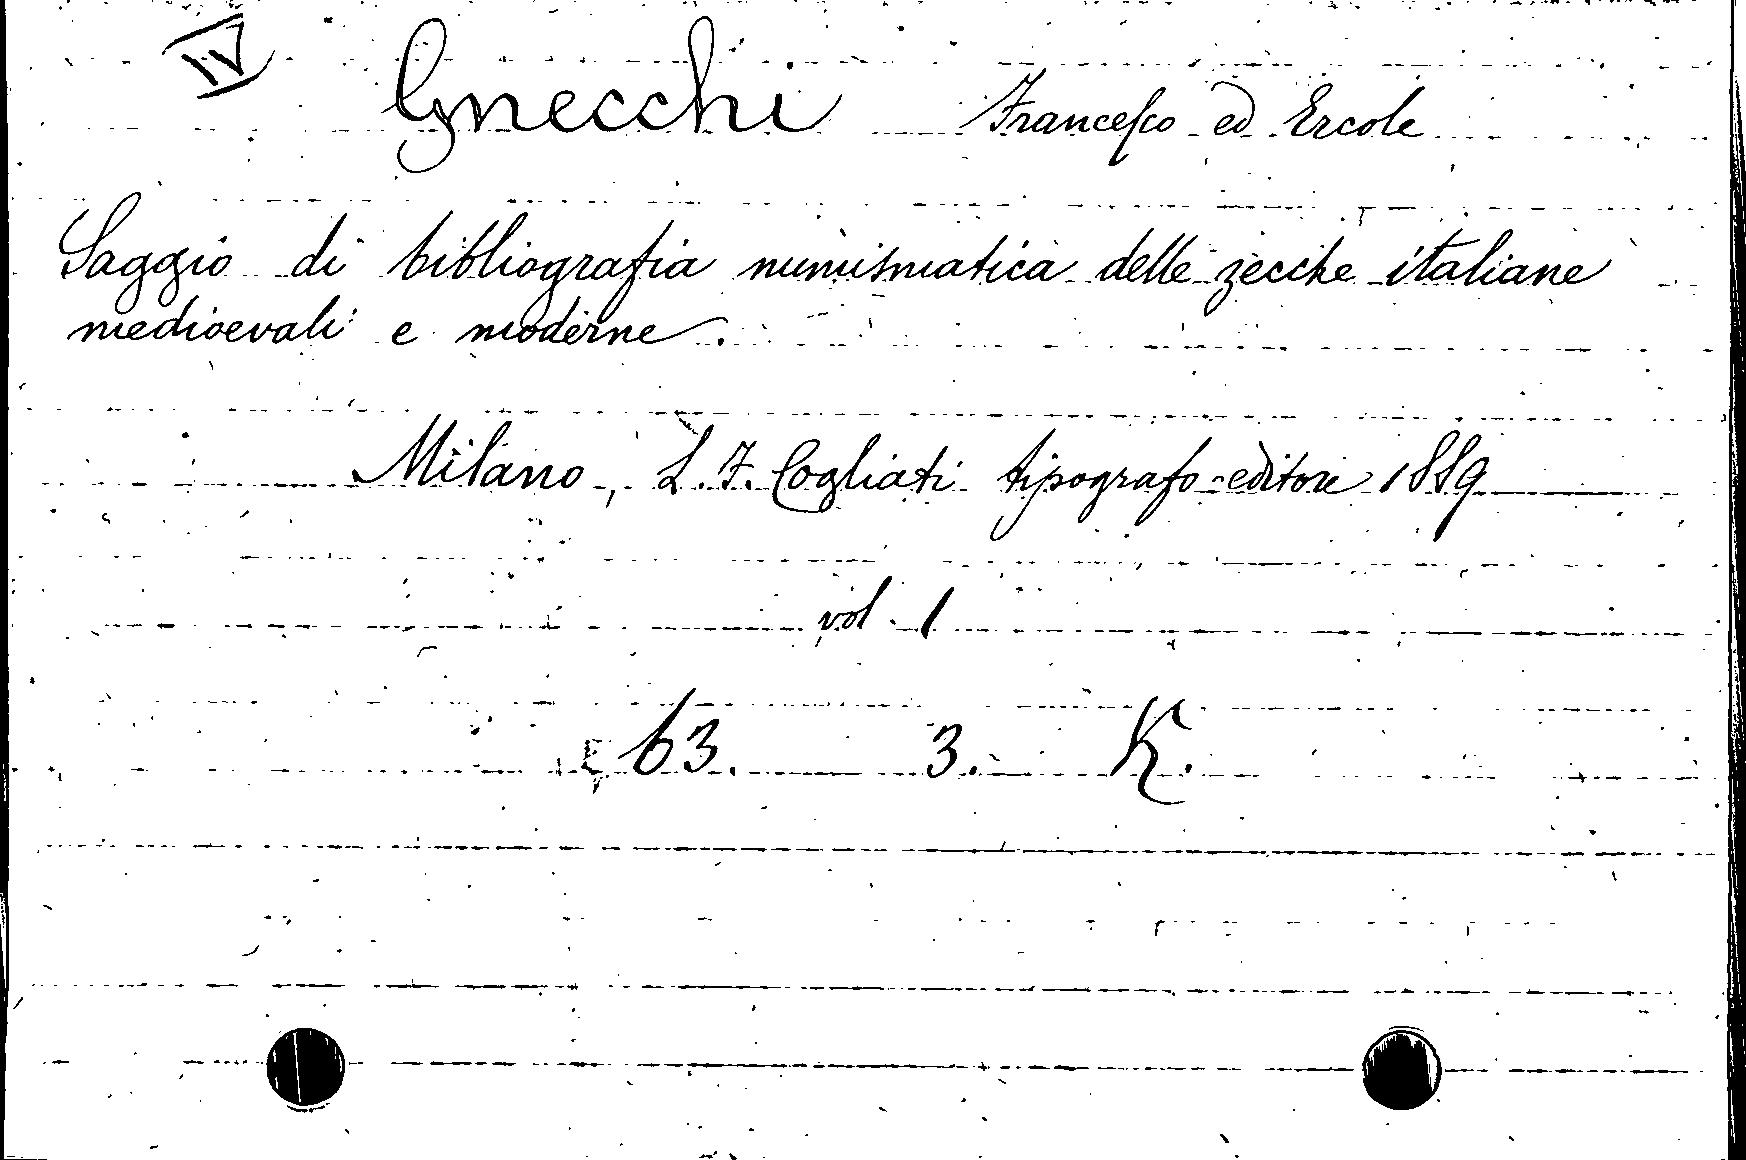 IV
Gnecchi Francesco ed Ercole
Saggio di bibliografia numismatica delle zecche italiane
medioevali e moderne.
Milano, L. F. Cogliati tipografo-editore 1889
vol. 1
63. 3. K.